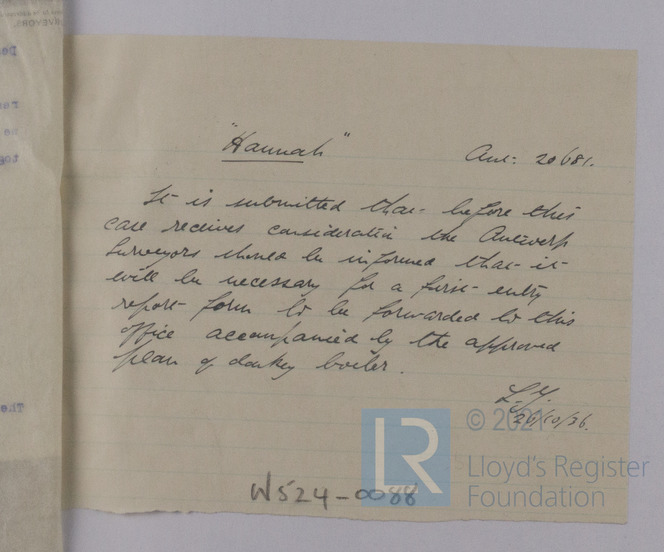 "Hannah"
Ant: 20681.
It is submitted that before this
case receives consideration the Antwerp
Surveyors should be informed that it
will be necessary for a first entry
report form to be forwarded to this
office accompanied by the approved
plan of donkey boiler.
L.Y.
26/10/36.
© 2021
LR
Lloyd's Register
Foundation
W524-0088